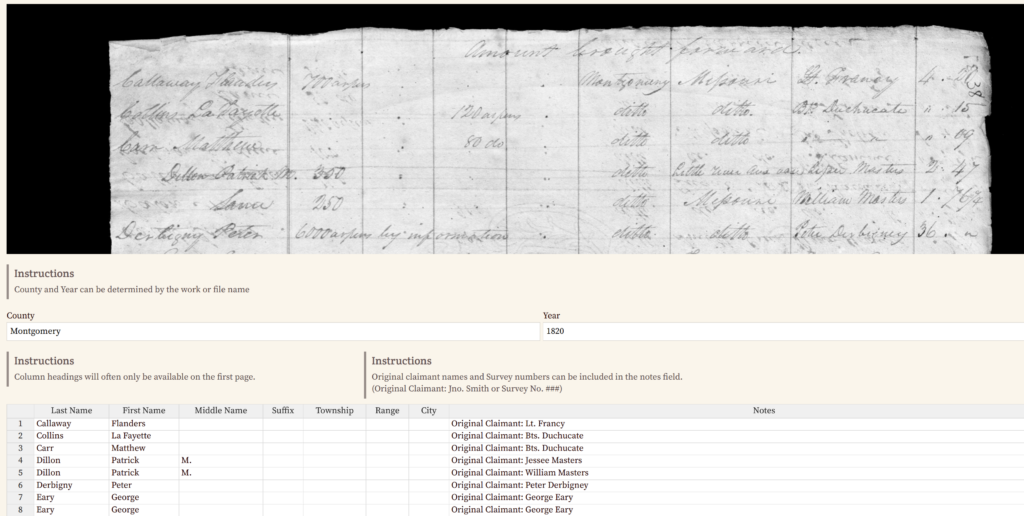 Amount brought forward.
Callaway Flanders 700 arpens Montgomery Missouri Lt. Francy 4
Collins La Fayette 120 arpens ditto ditto. Bts. Duchucate " 15
Carr Matthew 80 do ditto ditto " 09
Dillon Patrick M. 350 ditto Masters 2 47
Same 250 ditto Missouri William Masters 1
Derbigny Peter 6000 arpens by information ditto ditto Peter Derbigney 36
Instructions
County and Year can be determined by the work or file name
County Year
Montgomery 1820
Instructions Instructions
Column headings will often only be available on the first page. Original claimant names and Survey numbers can be included in the notes field.
(Original Claimant: Jno. Smith or Survey No. ###)
Last Name First Name Middle Name Suffix Township Range City Notes
1 Callaway Flanders Original Claimant: Lt. Francy
2 Collins La Fayette Original Claimant: Bts. Duchucate
3 Carr Matthew Original Claimant: Bts. Duchucate
4 Dillon Patrick M. Original Claimant: Jessee Masters
5 Dillon Patrick M. Original Claimant: William Masters
6 Derbigny Peter Original Claimant: Peter Derbigney
7 Eary George Original Claimant: George Eary
8 Eary George Original Claimant: George Eary